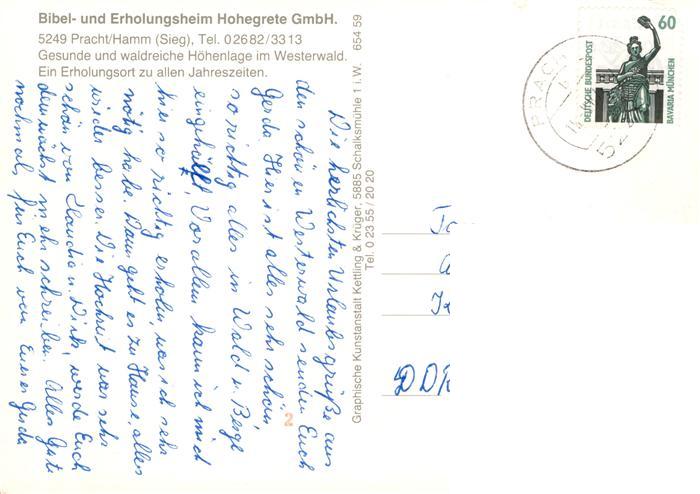 Bibel- und Erholungsheim Hohegrete GmbH.
5249 Pracht/Hamm (Sieg), Tel. 02682/3313
Gesunde und waldreiche Höhenlage im Westerwald.
Ein Erholungsort zu allen Jahreszeiten.
Die herzlichsten Urlaubsgrüße aus
den schönen Westerwald senden Euch
Gerda. Hier ist alles sehr schön
so richtig alles in Wald u. Berge
eingehüllt. Vor allem kann ich mich
hier so richtig erholen, was ich sehr
nötig habe. Dann geht es zu Hause, alles
wieder besser. Die Hochzeit war sehr
schön von Claudia u. Dirk, werde Euch
demnächst mehr schreiben. Alles Gute
nochmals für Euch von Eurer Gerda
Graphische Kunstanstalt Kettling & Krüger, 5885 Schalksmühle 1 i.W. 654 59
Tel. 0 23 55 / 20 20
2
60
DEUTSCHE BUNDESPOST
BAVARIA MÜNCHEN
PRACH
524
DDR